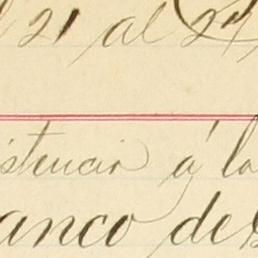 21 al 24
istencia á la
anco de